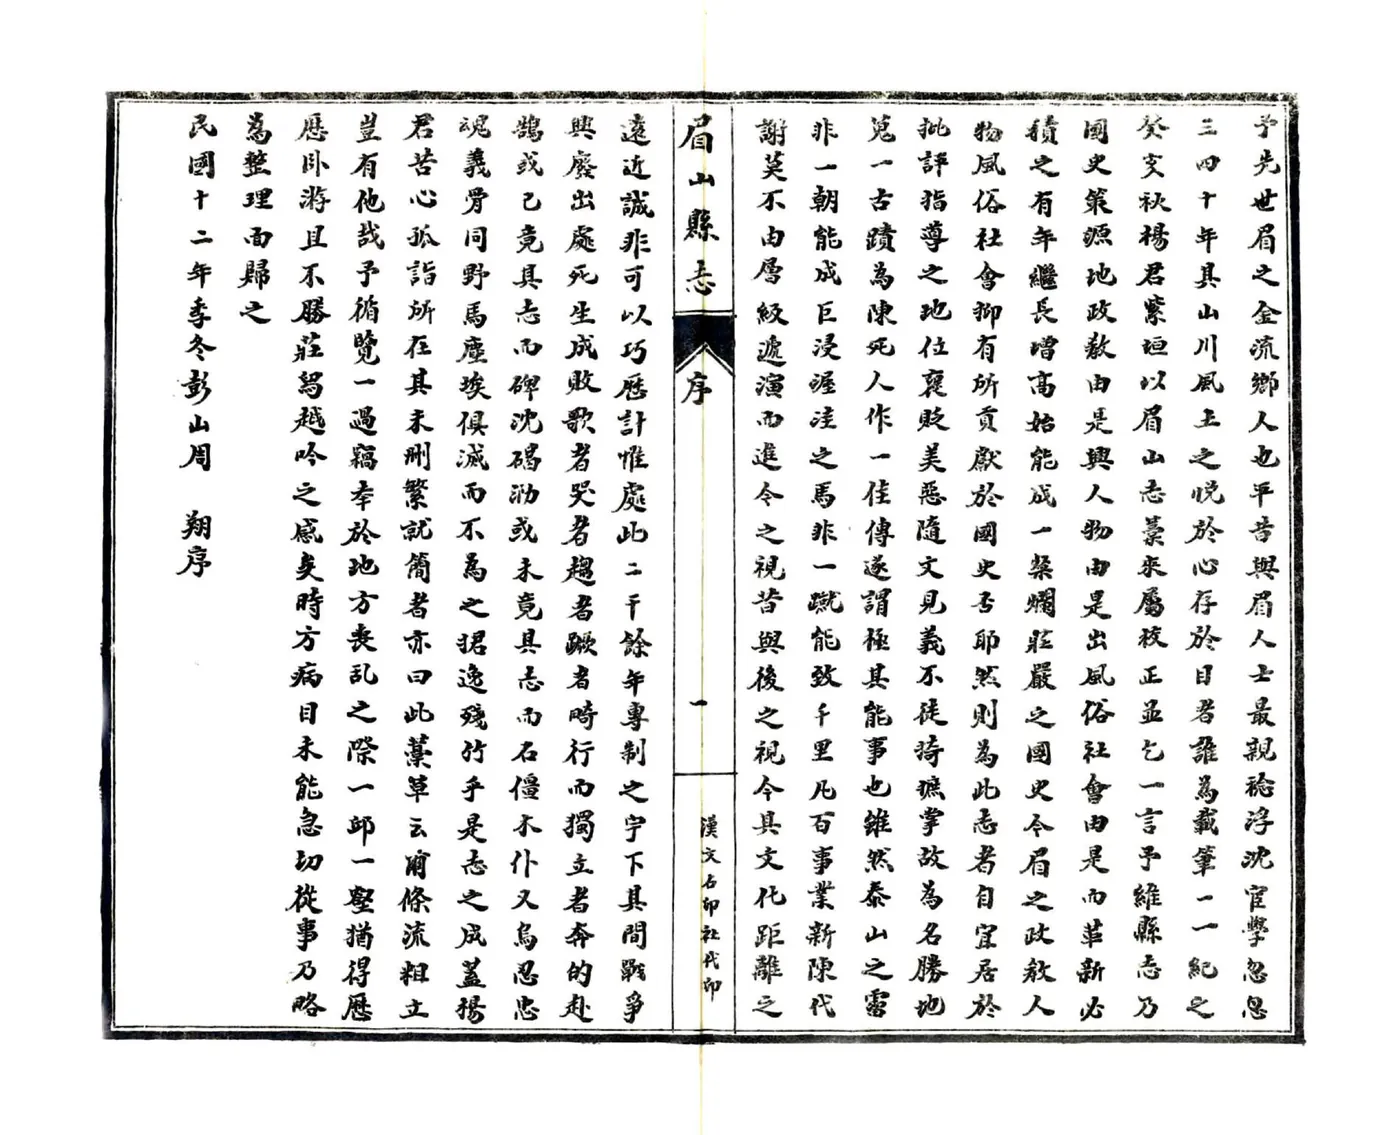 予先世眉之金流鄉人也平昔與眉人士最親稔浮沈宦學忽忽
三四十年其山川風土之悅於心存於目者誰為載筆一一紀之
癸亥秋楊君紫垣以眉山志藁來屬校正並乞一言予維縣志乃
國史策源地政教由是興人物由是出風俗社會由是而革新必
積之有年繼長增高始能成一粲爛莊嚴之國史今眉之政教人
物風俗社會抑有所貢獻於國史否耶然則為此志者自宜居於
批評指導之地位襃貶美惡隨文見義不徒掎摭掌故為名勝地
蒐一古蹟為陳死人作一佳傳遂謂極其能事也雖然泰山之霤
非一朝能成巨浸渥洼之馬非一蹴能致千里凡百事業新陳代
謝莫不由層級遞演而進今之視昔與後之視今其文化距離之
眉山縣志
序
一
漢文石印社代印
遠近誠非可以巧歷計惟處此二千餘年專制之宇下其間戰爭
興廢出處死生成敗歌者哭者趨者蹶者畸行而獨立者奔的赴
鵠或已竟其志而碑沈碣泐或未竟其志而石僵木仆又烏忍忠
魂義骨同野馬塵埃俱滅而不為之捃逸殘竹乎是志之成蓋楊
君苦心孤詣所在其未刪繁就簡者亦曰此藁草云爾條流粗立
豈有他哉予循覽一過竊幸於地方喪乱之際一邱一壑猶得歷
歷卧游且不勝莊舄越吟之感矣時方病目未能急切從事乃略
為整理而歸之
民國十二年季冬彭山周 翔序